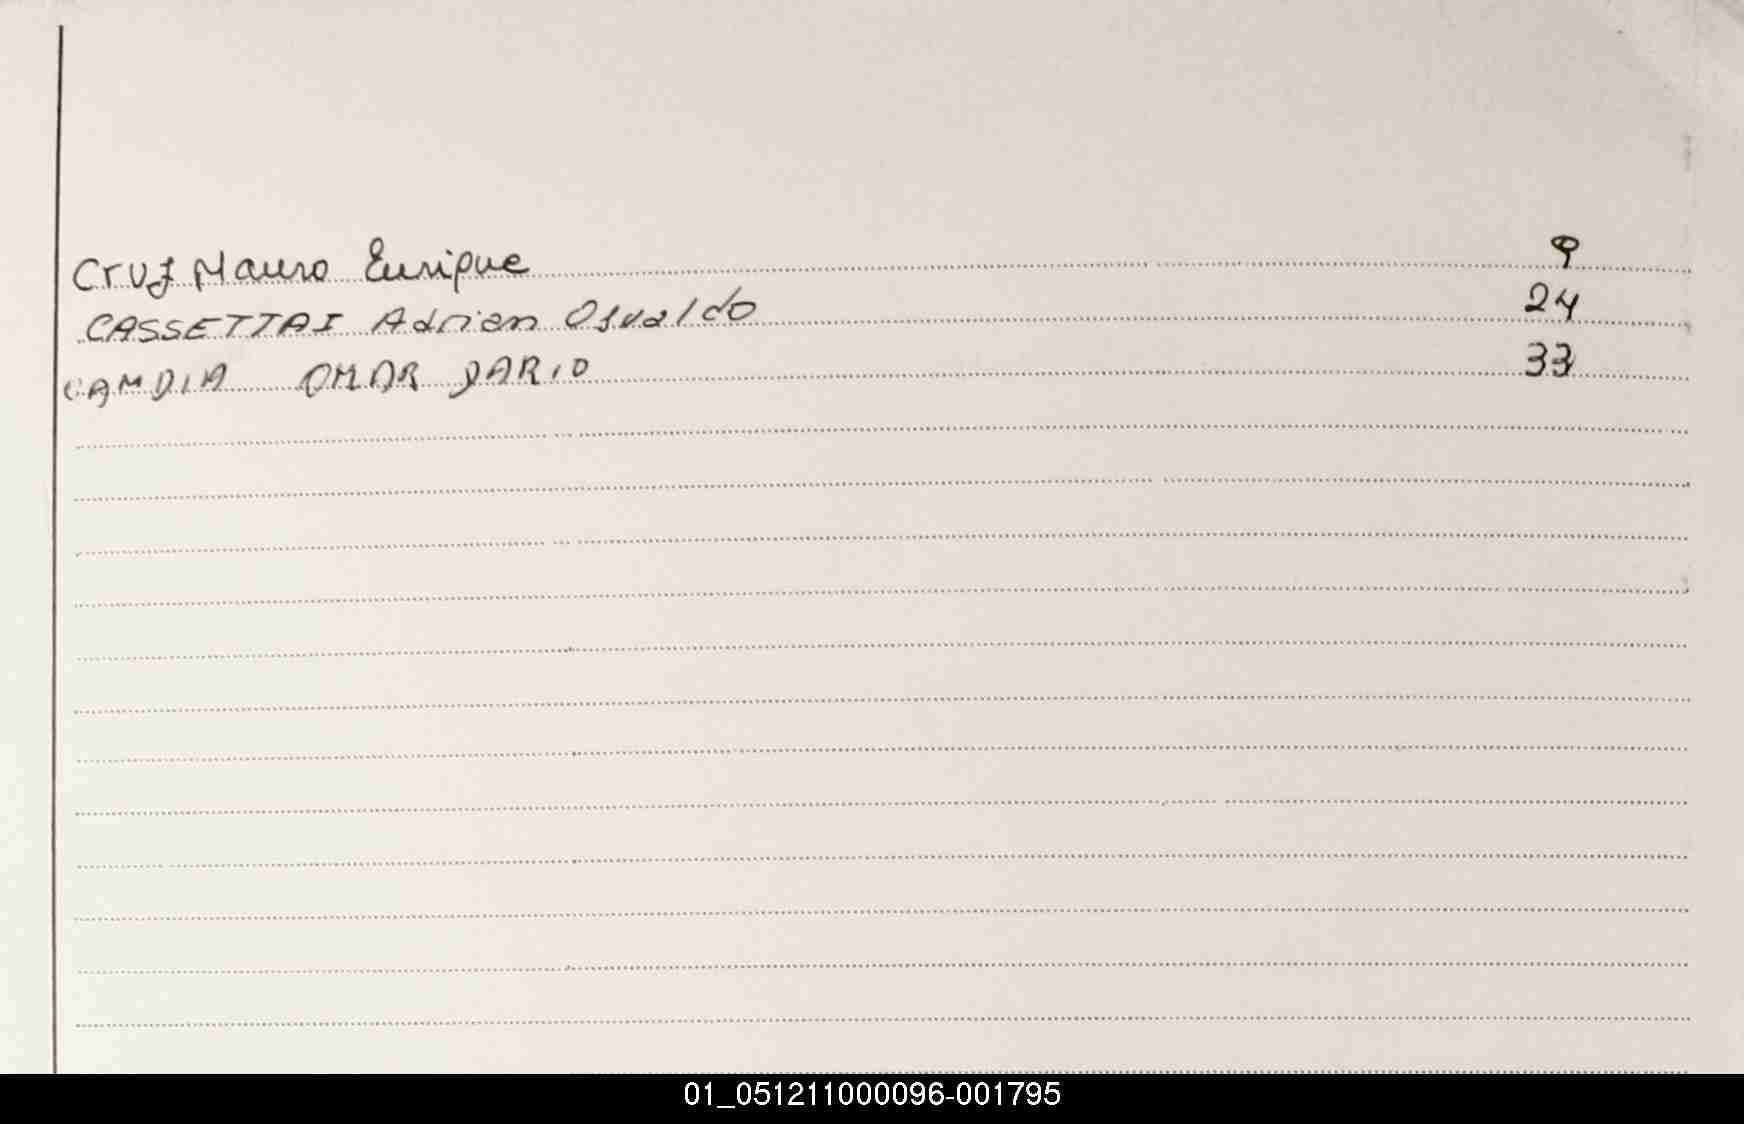 Cruz Mauro Enrique 9
CASSETTAI Adrian Osvaldo 24
CANDIA OMAR DARIO 33
01_051211000096-001795